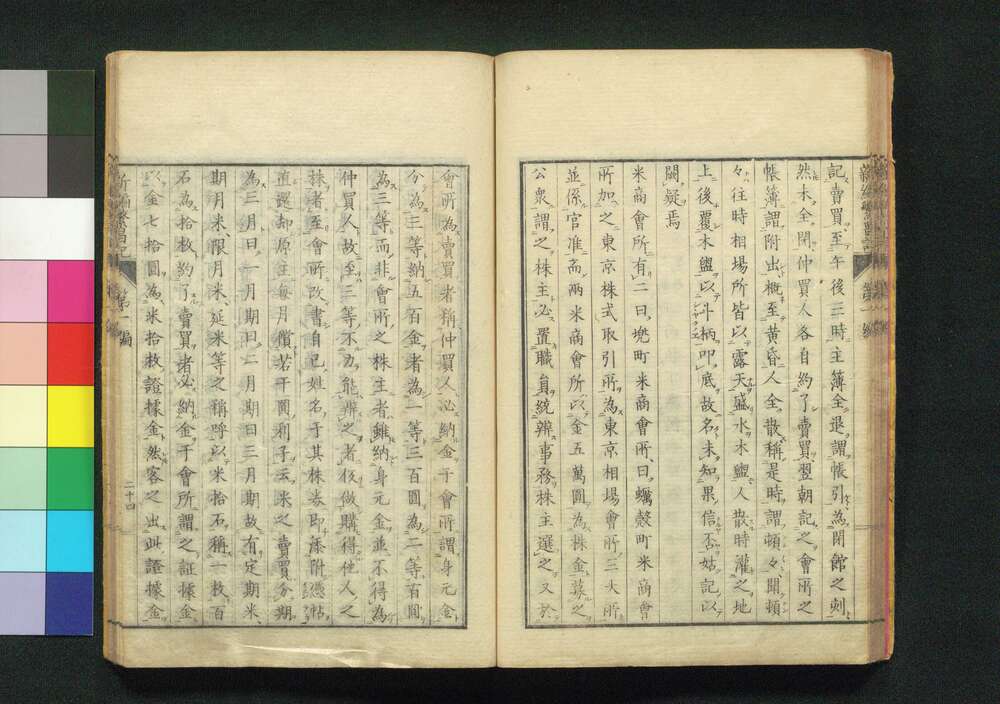 記賣買至午後三時主簿全退謂帳引為閉館之刻
然木全閉仲買人各自約了賣買翌朝記之會所之
帳簿謂附出概至黄昏人全散稱是時謂頓々開頓
々往時相場所皆以露天盛水木盥人散時灌之地
上後覆木盥以斗柄叩底故名未知果信否姑記以
闕疑焉
米商會所有二曰兜町米商會所曰蠣殼町米商會
所加之東京株式取引所為東京相場會所三大所
並係官准而兩米商會所以金五萬圓為株金募之
公衆謂之株主必置職員統辨事務株主選之又於
會所為賣買者稱仲買人必納金于會所謂身元金
分為三等納五百金者為一等三百圓為二等百圓
為三等而非會所之株主者雖納身元金並不得為
仲買人故至三等不力能辨之者假做購得他人之
株者至會所改書自己姓名于其株券即添附憑帖
直還却原主每月償若干圓利子云米之賣買分期
為三月曰一月期曰二月期曰三月期故有定期米
期月米限月米延米等之稱呼以米拾石稱一枚百
石為拾枚約了賣買者必納金于會所謂之証據金
以金七拾圓為米拾枚證據金然客之出此證據金
新編繁昌記
第一編
二十四